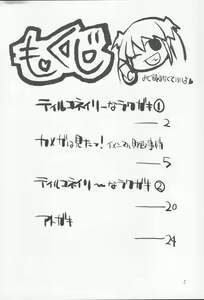 もくじ
ティルコネイリーなラクガキ①
2
カメザは見たっ!
5
ティルコネイリ〜なラクガキ②
20
アトガキ
24